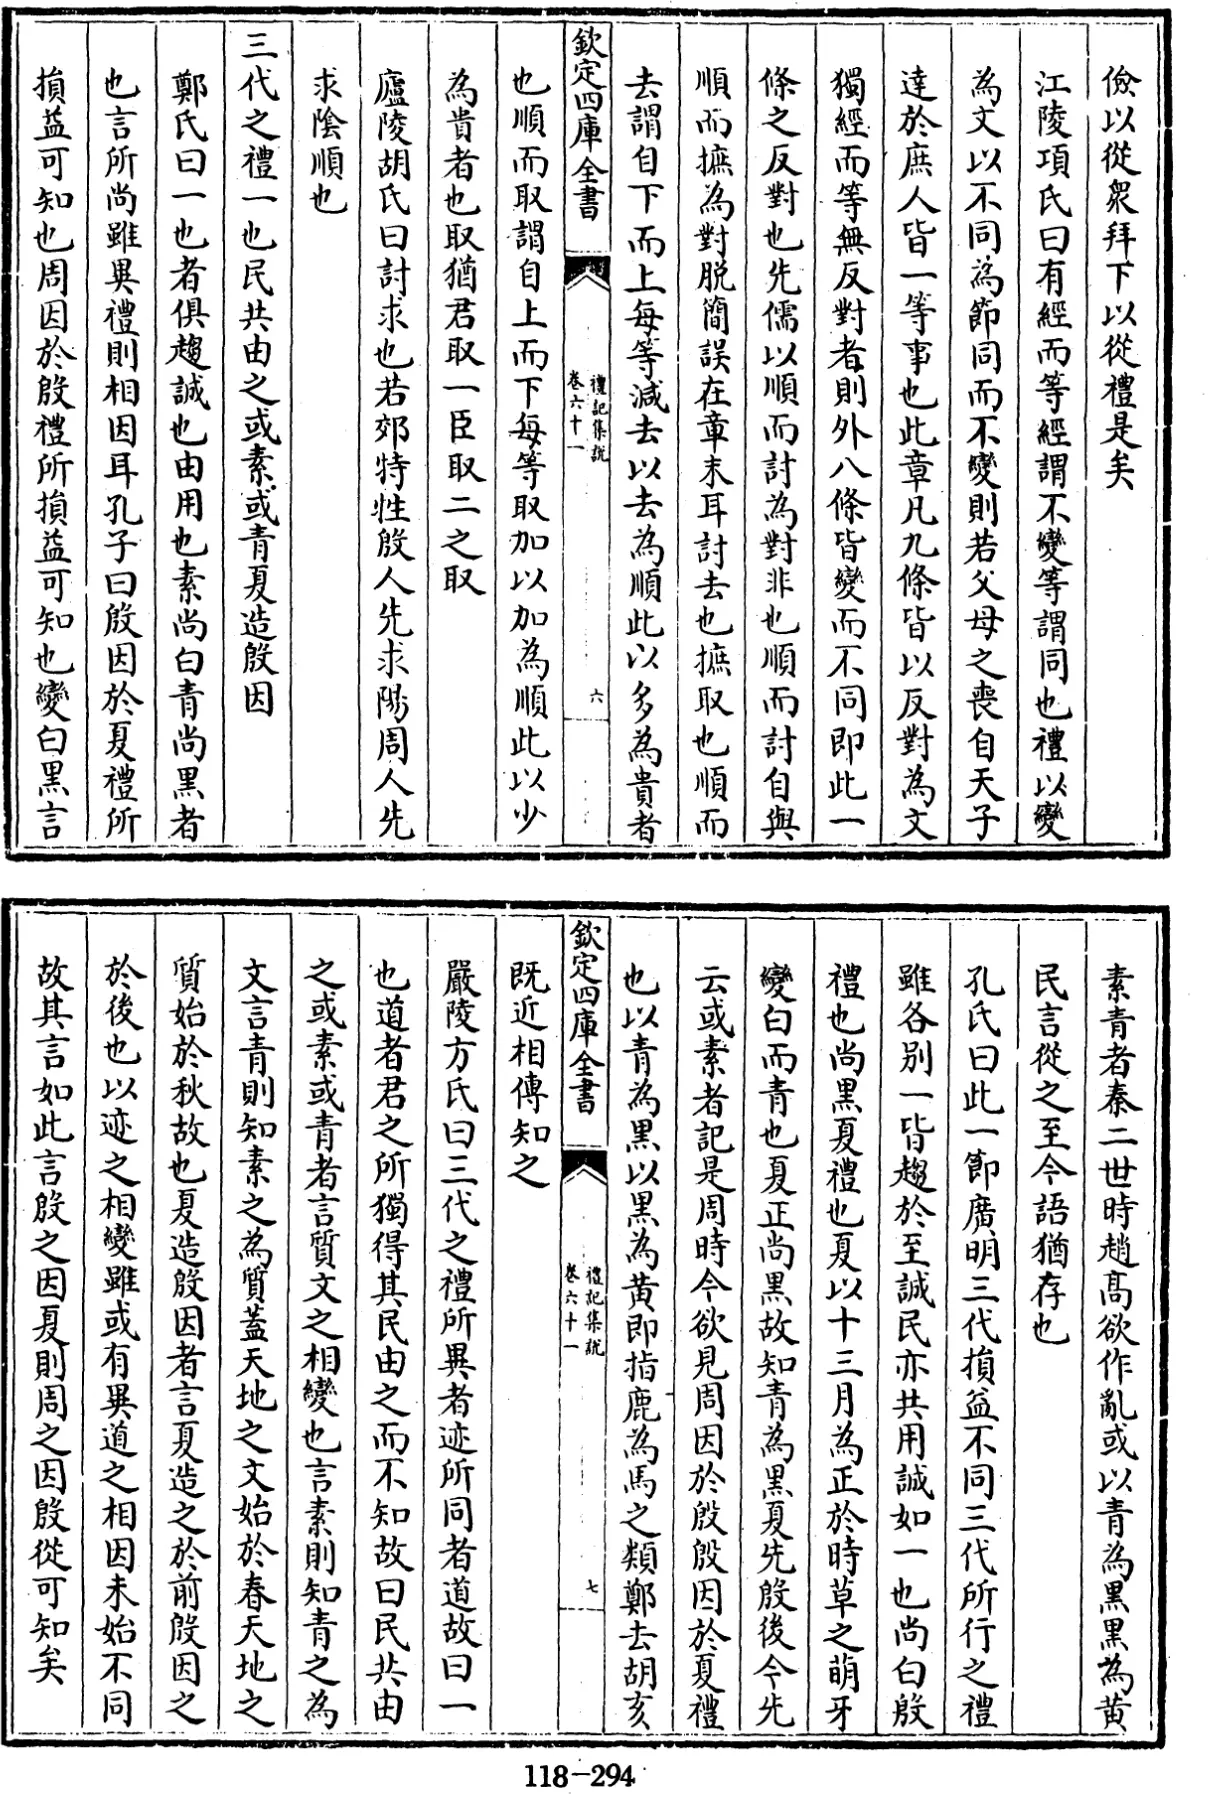 儉以從衆拜下以從禮是矣
江陵項氏曰有經而等經謂不變等謂同也禮以變
為文以不同為節同而不變則若父母之喪自天子
達於庶人皆一等事也此章凡九條皆以反對為文
獨經而等無反對者則外八條皆變而不同即此一
條之反對也先儒以順而討為對非也順而討自與
順而摭為對脱簡誤在章末耳討去也摭取也順而
去謂自下而上每等減去以去為順此以多為貴者
欽定四庫全書
禮記集說
卷六十一
六
也順而取謂自上而下每等取加以加為順此以少
為貴者也取猶君取一臣取二之取
廬陵胡氏曰討求也若郊特牲殷人先求陽周人先
求陰順也
三代之禮一也民共由之或素或青夏造殷因
鄭氏曰一也者俱趨誠也由用也素尚白青尚黑者
也言所尚雖異禮則相因耳孔子曰殷因於夏禮所
損益可知也周因於殷禮所損益可知也變白黑言
素青者秦二世時趙高欲作亂或以青為黑黑為黃
民言從之至今語猶存也
孔氏曰此一節廣明三代損益不同三代所行之禮
雖各别一皆趨於至誠民亦共用誠如一也尚白殷
禮也尚黑夏禮也夏以十三月為正於時草之萌牙
變白而青也夏正尚黑故知青為黑夏先殷後今先
云或素者記是周時今欲見周因於殷殷因於夏禮
也以青為黑以黑為黄即指鹿為馬之類鄭去胡亥
欽定四庫全書
禮記集說
卷六十一
七
既近相傳知之
嚴陵方氏曰三代之禮所異者迹所同者道故曰一
也道者君之所獨得其民由之而不知故曰民共由
之或素或青者言質文之相變也言素則知青之為
文言青則知素之為質蓋天地之文始於春天地之
質始於秋故也夏造殷因者言夏造之於前殷因之
於後也以迹之相變雖或有異道之相因未始不同
故其言如此言殷之因夏則周之因殷從可知矣
118-294